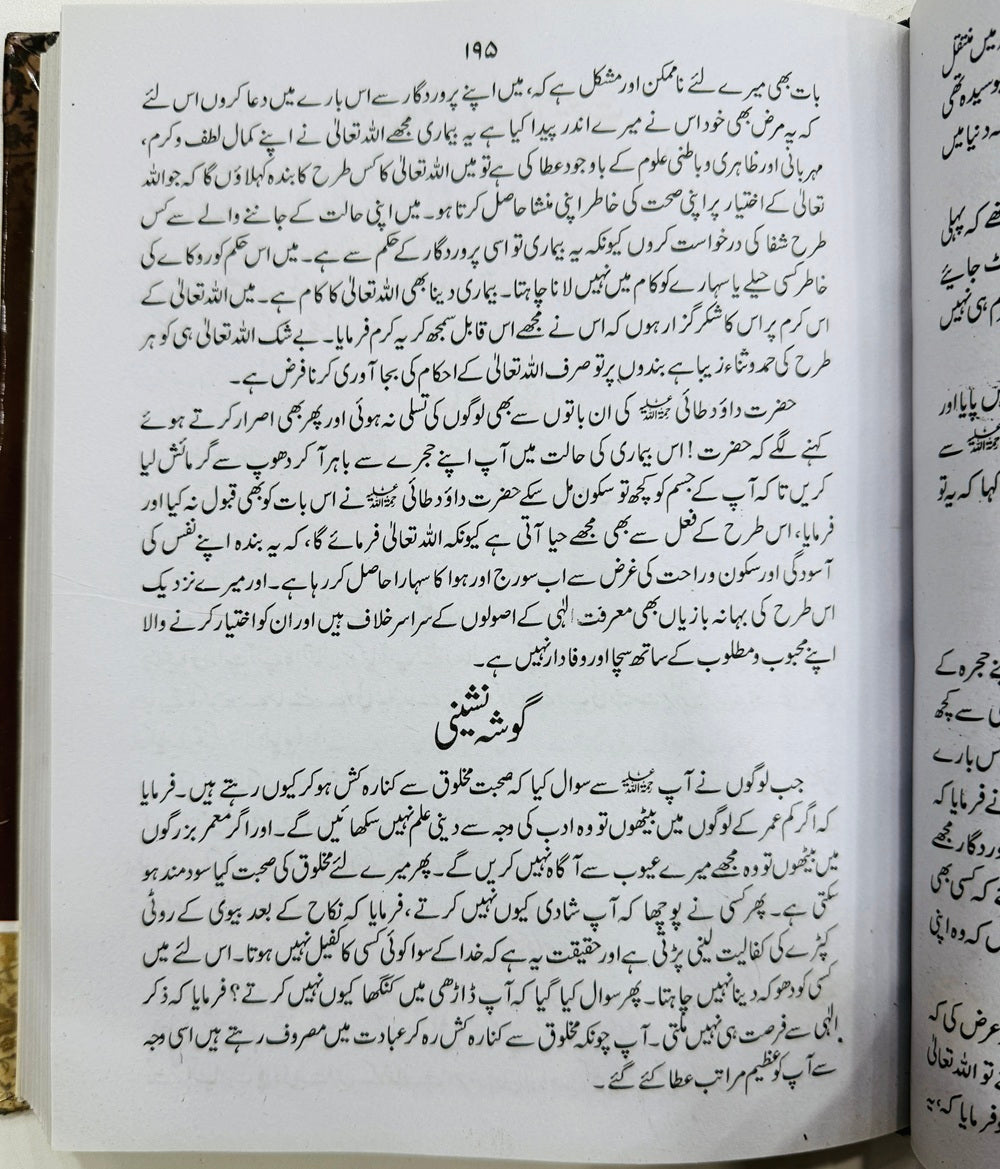 ۱۹۵
بات بھی میرے لئے ناممکن اور مشکل ہے کہ، میں اپنے پروردگار سے اس بارے میں دعا کروں اس لئے
کہ یہ مرض بھی خود اس نے میرے اندر پیدا کیا ہے یہ بیماری مجھے اللہ تعالیٰ نے اپنے کمال لطف و کرم،
مہربانی اور ظاہری و باطنی علوم کے باوجود عطا کی ہے تو میں اللہ تعالیٰ کا کس طرح کا بندہ کہلاؤں گا کہ جو اللہ
تعالیٰ کے اختیار پر اپنی صحت کی خاطر اپنی منشا حاصل کرتا ہو۔ میں اپنی حالت کے جاننے والے سے کس
طرح شفا کی درخواست کروں کیونکہ یہ بیماری تو اسی پروردگار کے حکم سے ہے۔ میں اس حکم کو روکا ے کی
خاطر کسی حیلے یا سہارے کو کام میں نہیں لانا چاہتا۔ بیماری دینا بھی اللہ تعالیٰ کا کام ہے۔ میں اللہ تعالیٰ کے
اس کرم پر اس کا شکر گزار ہوں کہ اس نے مجھے اس قابل سمجھ کر یہ کرم فرمایا۔ بے شک اللہ تعالیٰ ہی کو ہر
طرح کی حمد و ثناء زیبا ہے بندوں پر تو صرف اللہ تعالیٰ کے احکام کی بجا آوری کرنا فرض ہے۔
حضرت داؤد طائی رحمۃ اللہ علیہ کی ان باتوں سے بھی لوگوں کی تسلی نہ ہوئی اور پھر بھی اصرار کرتے ہوئے
کہنے لگے کہ حضرت! اس بیماری کی حالت میں آپ اپنے حجرے سے باہر آ کر دھوپ سے گرمائش لیا
کریں تا کہ آپ کے جسم کو کچھ تو سکون مل سکے حضرت داؤد طائی رحمۃ اللہ علیہ نے اس بات کو بھی قبول نہ کیا اور
فرمایا، اس طرح کے فعل سے بھی مجھے حیا آتی ہے کیونکہ اللہ تعالیٰ فرمائے گا، کہ یہ بندہ اپنے نفس کی
آسودگی اور سکون و راحت کی غرض سے اب سورج اور ہوا کا سہارا حاصل کر رہا ہے۔ اور میرے نزدیک
اس طرح کی بہانہ بازیاں بھی معرفت الٰہی کے اصولوں کے سراسر خلاف ہیں اور ان کو اختیار کرنے والا
اپنے محبوب و مطلوب کے ساتھ سچا اور وفادار نہیں ہے۔
گوشہ نشینی
جب لوگوں نے آپ رحمۃ اللہ علیہ سے سوال کیا کہ صحبت مخلوق سے کنارہ کش ہو کر کیوں رہتے ہیں۔ فرمایا
کہ اگر کم عمر کے لوگوں میں بیٹھوں تو وہ ادب کی وجہ سے دینی علم نہیں سکھائیں گے۔ اور اگر معمر بزرگوں
میں بیٹھوں تو وہ مجھے میرے عیوب سے آگاہ نہیں کریں گے۔ پھر میرے لئے مخلوق کی صحبت کیا سود مند ہو
سکتی ہے۔ پھر کسی نے پوچھا کہ آپ شادی کیوں نہیں کرتے، فرمایا کہ نکاح کے بعد بیوی کے روٹی
کپڑے کی کفالیت لینی پڑتی ہے اور حقیقت یہ ہے کہ خدا کے سوا کوئی کسی کا کفیل نہیں ہوتا۔ اس لئے میں
کسی کو دھوکہ دینا نہیں چاہتا۔ پھر سوال کیا گیا کہ آپ ڈاڑھی میں کنگھا کیوں نہیں کرتے؟ فرمایا کہ ذکر
الٰہی سے فرصت ہی نہیں ملتی۔ آپ چونکہ مخلوق سے کنارہ کش رہ کر عبادت میں مصروف رہتے ہیں اسی وجہ
سے آپ کو عظیم مراتب عطا کئے گئے۔
میں منتقل
بوسیدہ تھی
دنیا میں
کہ پہلی
جایئے
ہی نہیں
پایا اور
رحمۃ اللہ علیہ سے
کہا کہ یہ تو
حجرہ کے
سے کچھ
اس بارے
نے فرمایا کہ
مجھے
کہ کسی بھی
کہ وہ اپنی
عرض کی کہ
تو اللہ تعالیٰ
فرمایا کہ، یہ